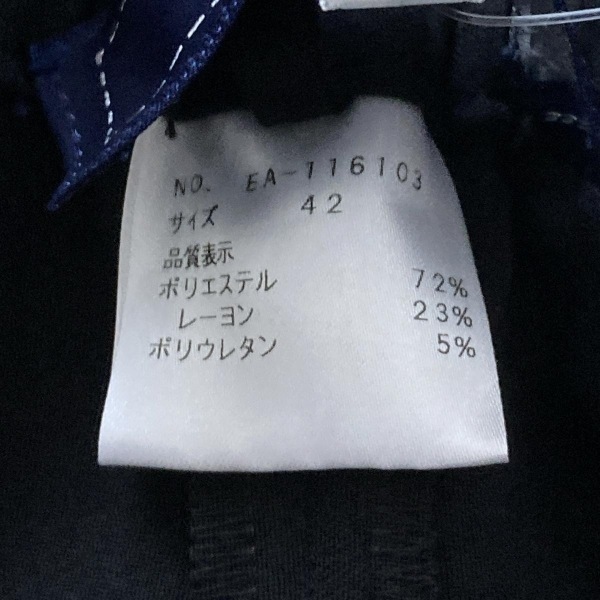 NO. EA-116103
サイズ 42
品質表示
ポリエステル 72%
レーヨン 23%
ポリウレタン 5%